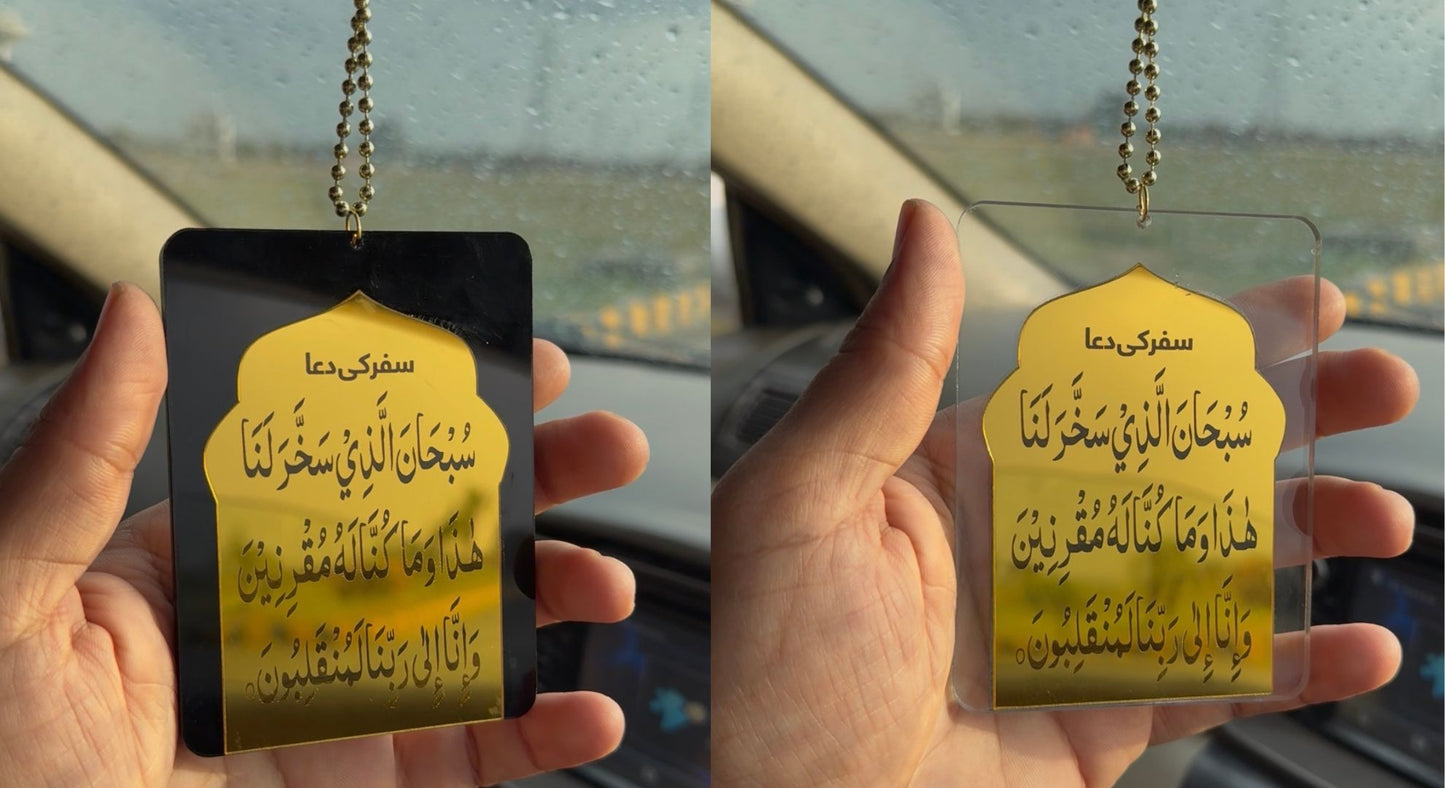 سفر کی دعا
سُبْحَانَ الَّذِيْ سَخَّرَ لَنَا
هٰذَا وَمَا كُنَّا لَهُ مُقْرِنِيْنَ
وَإِنَّا إِلىٰ رَبِّنَا لَمُنْقَلِبُونَ
سفر کی دعا
سُبْحَانَ الَّذِيْ سَخَّرَ لَنَا
هٰذَا وَمَا كُنَّا لَهُ مُقْرِنِيْنَ
وَإِنَّا إِلىٰ رَبِّنَا لَمُنْقَلِبُونَ